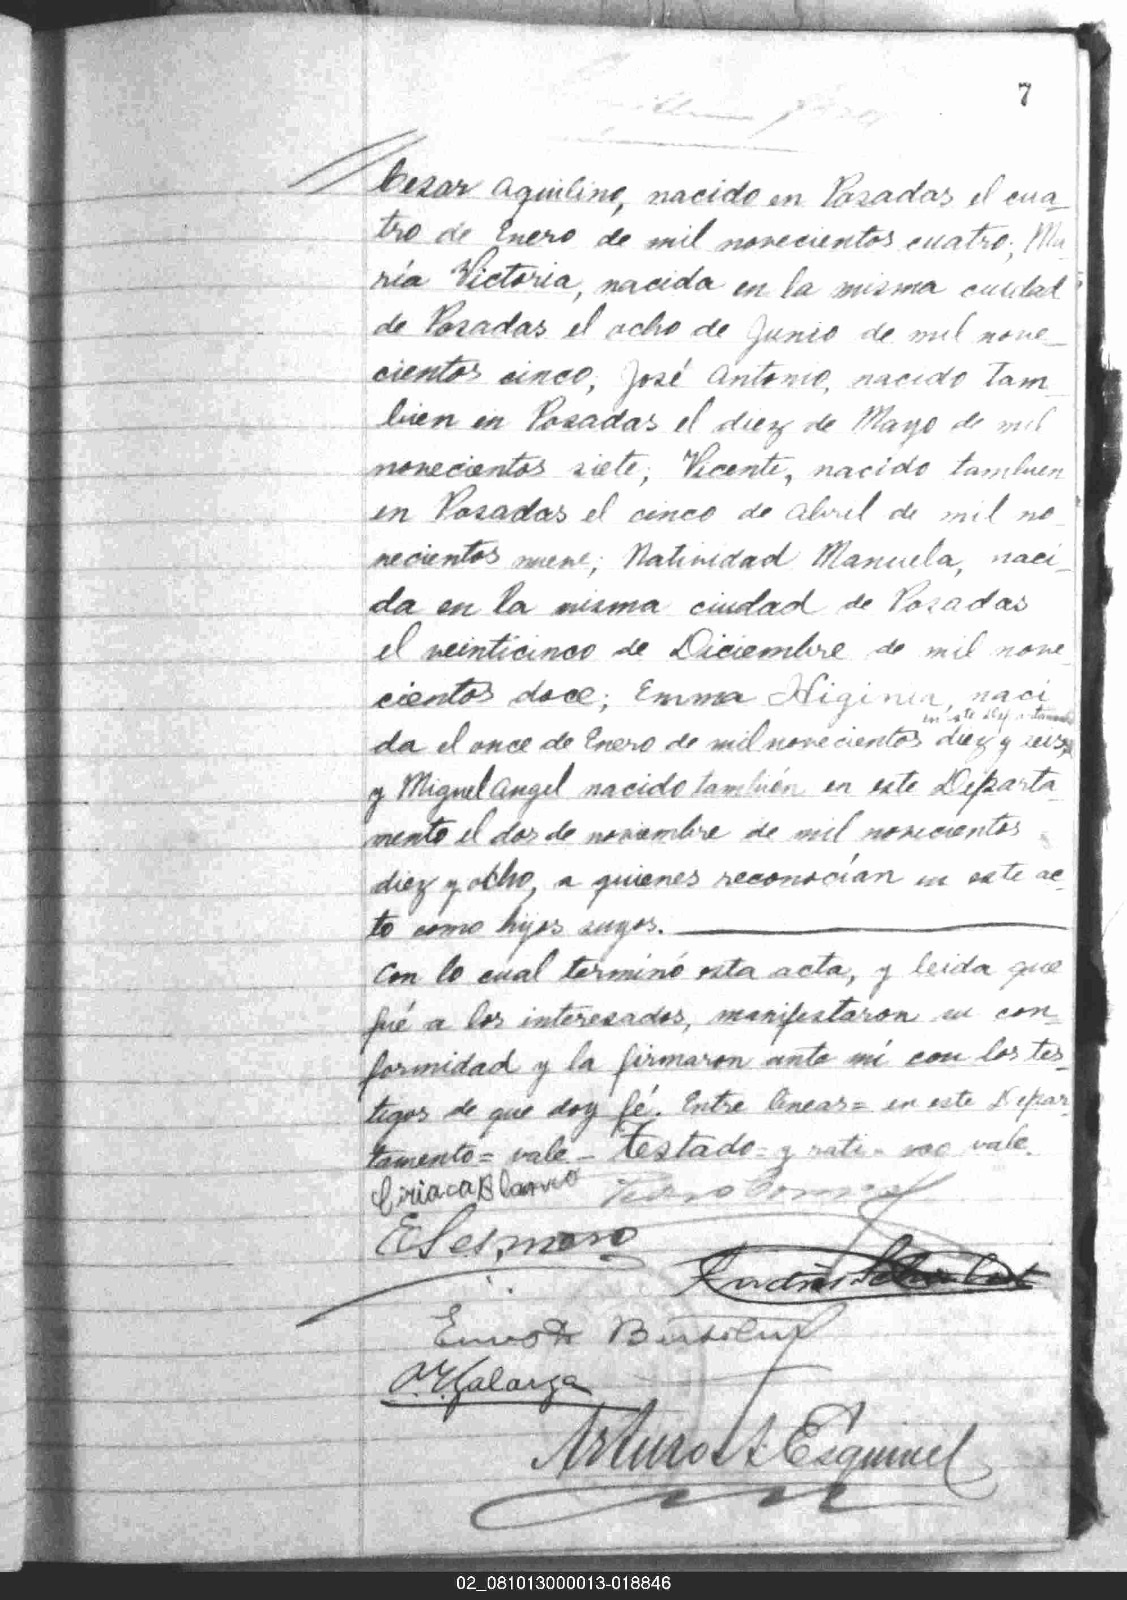 7
Cesar Aquilino, nacido en Posadas el cua-
tro de Enero de mil novecientos cuatro; Ma-
ría Victoria, nacida en la misma ciudad
de Posadas el ocho de Junio de mil nove-
cientos cinco; José Antonio, nacido tam-
bien en Posadas el diez de Mayo de mil
novecientos siete; Vicente, nacido tambien
en Posadas el cinco de Abril de mil no-
vecientos nueve; Natividad Manuela, naci-
da en la misma ciudad de Posadas
el veinticinco de Diciembre de mil nove-
cientos doce; Emma Higinia, naci
en este Departamento
da el once de Enero de mil novecientos diez y seis,
y Miguel Angel nacido también en este Departa-
mento el dos de noviembre de mil novecientos
diez y ocho, a quienes reconocían en este ac-
to como hijos suyos.
Con lo cual terminó esta acta, y leida que
fué a los interesados, manifestaron su con-
formidad y la firmaron ante mí con los tes-
tigos de que doy fé. Entre lineas= en este Depar-
tamento= vale - Testado= y = no vale.
Ciriaca Blanco Pedro
E Sesmero
Andrés
Ernesto
Galarza
Arturo A. Esquivel
02_081013000013-018846